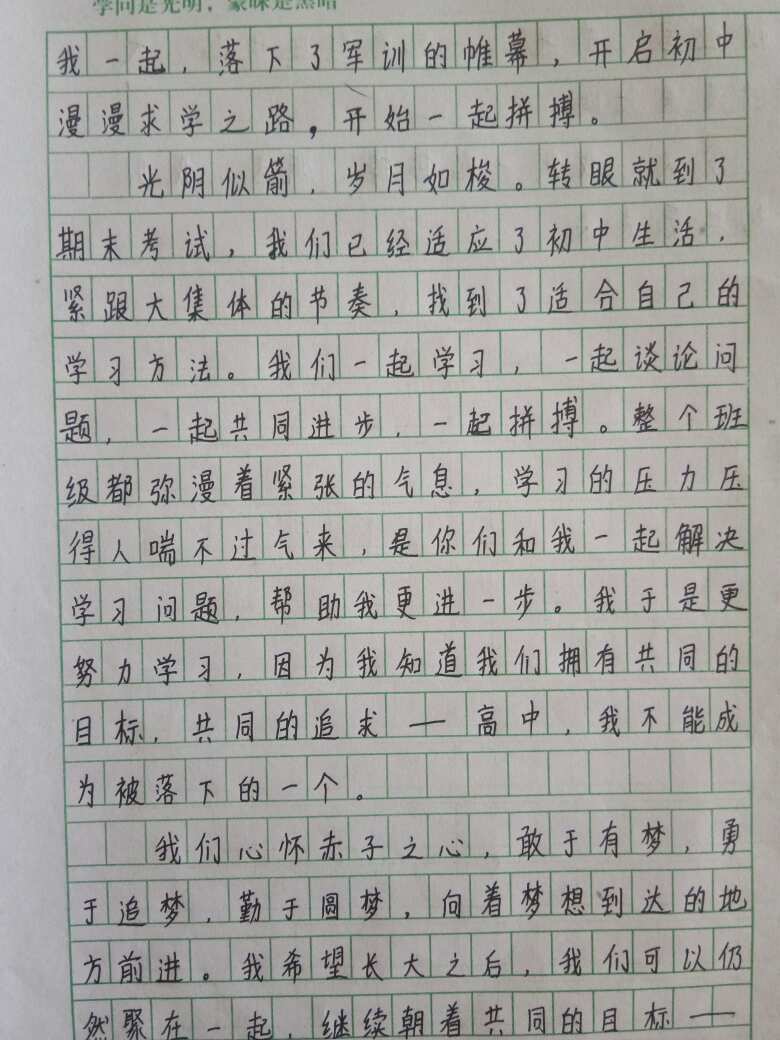 学问是光明，蒙昧是黑暗
我一起，落下了军训的帷幕，开启初中
漫漫求学之路，开始一起拼搏。
光阴似箭，岁月如梭。转眼就到了
期末考试，我们已经适应了初中生活，
紧跟大集体的节奏，找到了适合自己的
学习方法。我们一起学习，一起谈论问
题，一起共同进步，一起拼搏。整个班
级都弥漫着紧张的气息，学习的压力压
得人喘不过气来，是你们和我一起解决
学习问题，帮助我更进一步。我于是更
努力学习，因为我知道我们拥有共同的
目标，共同的追求——高中，我不能成
为被落下的一个。
我们心怀赤子之心，敢于有梦，勇
于追梦，勤于圆梦，向着梦想到达的地
方前进。我希望长大之后，我们可以仍
然聚在一起，继续朝着共同的目标——